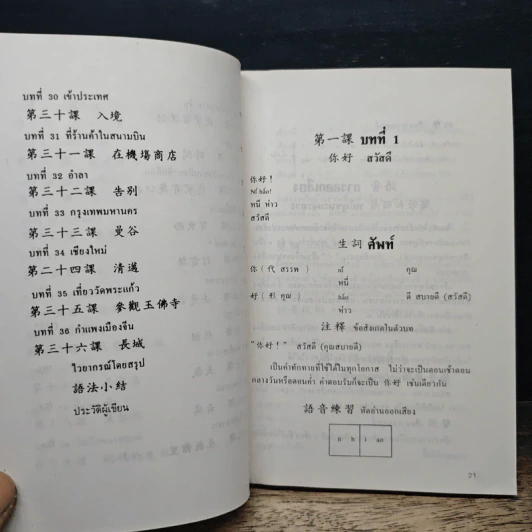 บทที่ 30 เข้าประเทศ
第三十課 入境
บทที่ 31 ที่ร้านค้าในสนามบิน
第三十一課 在機場商店
บทที่ 32 อำลา
第三十二課 告別
บทที่ 33 กรุงเทพมหานคร
第三十三課 曼谷
บทที่ 34 เชียงใหม่
第二十四課 清邁
บทที่ 35 เที่ยววัดพระแก้ว
第三十五課 參觀玉佛寺
บทที่ 36 กำแพงเมืองจีน
第三十六課 長城
ไวยากรณ์โดยสรุป
語法小結
ประวัติผู้เขียน
第一課 บทที่ 1
你好 สวัสดี
你好!
Nǐ hǎo!
หนี ห่าว
สวัสดี
生詞 ศัพท์
你 (代 สรรพ) nǐ คุณ
หนี่
好 (形 คุณ) hǎo ดี สบายดี (สวัสดี)
ห่าว
注釋 ข้อสังเกตในตัวบท
"你好!" สวัสดี (คุณสบายดี)
เป็นคำทักทายที่ใช้ได้ในทุกโอกาส ไม่ว่าจะเป็นตอนเช้าตอน
กลางวันหรือตอนค่ำ คำตอบรับก็จะเป็น 你好 เช่นเดียวกัน
語音練習 หัดอ่านออกเสียง
n h i ao
21